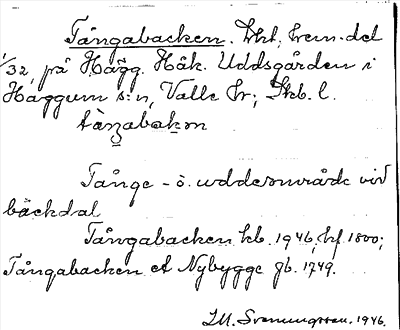 Tångabacken. Lht, hem.del
1/32, på Hägg. Håk. Uddsgården i
Häggum s:n, Valle hr; Skb. l.
Tånge - o. uddeområde vid
bäckdal
Tångabacken kb. 1946, hf. 1800;
Tångabacken et Nybygge gb. 1749.
I.M. Svenungsson. 1946.